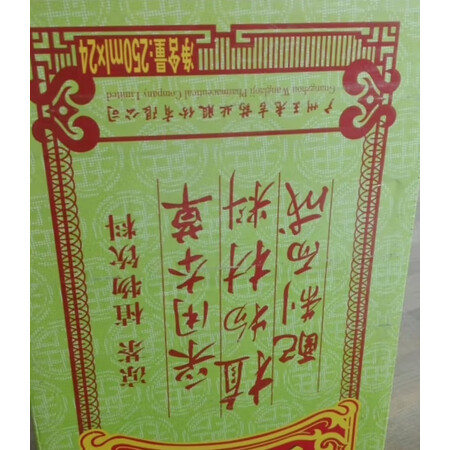 凉茶植物饮料
采用本草
植物材料
配制而成
广州王老吉药业股份有限公司
Guangzhou Wanglaoji Pharmaceutical Company Limited
净含量:250ml×24